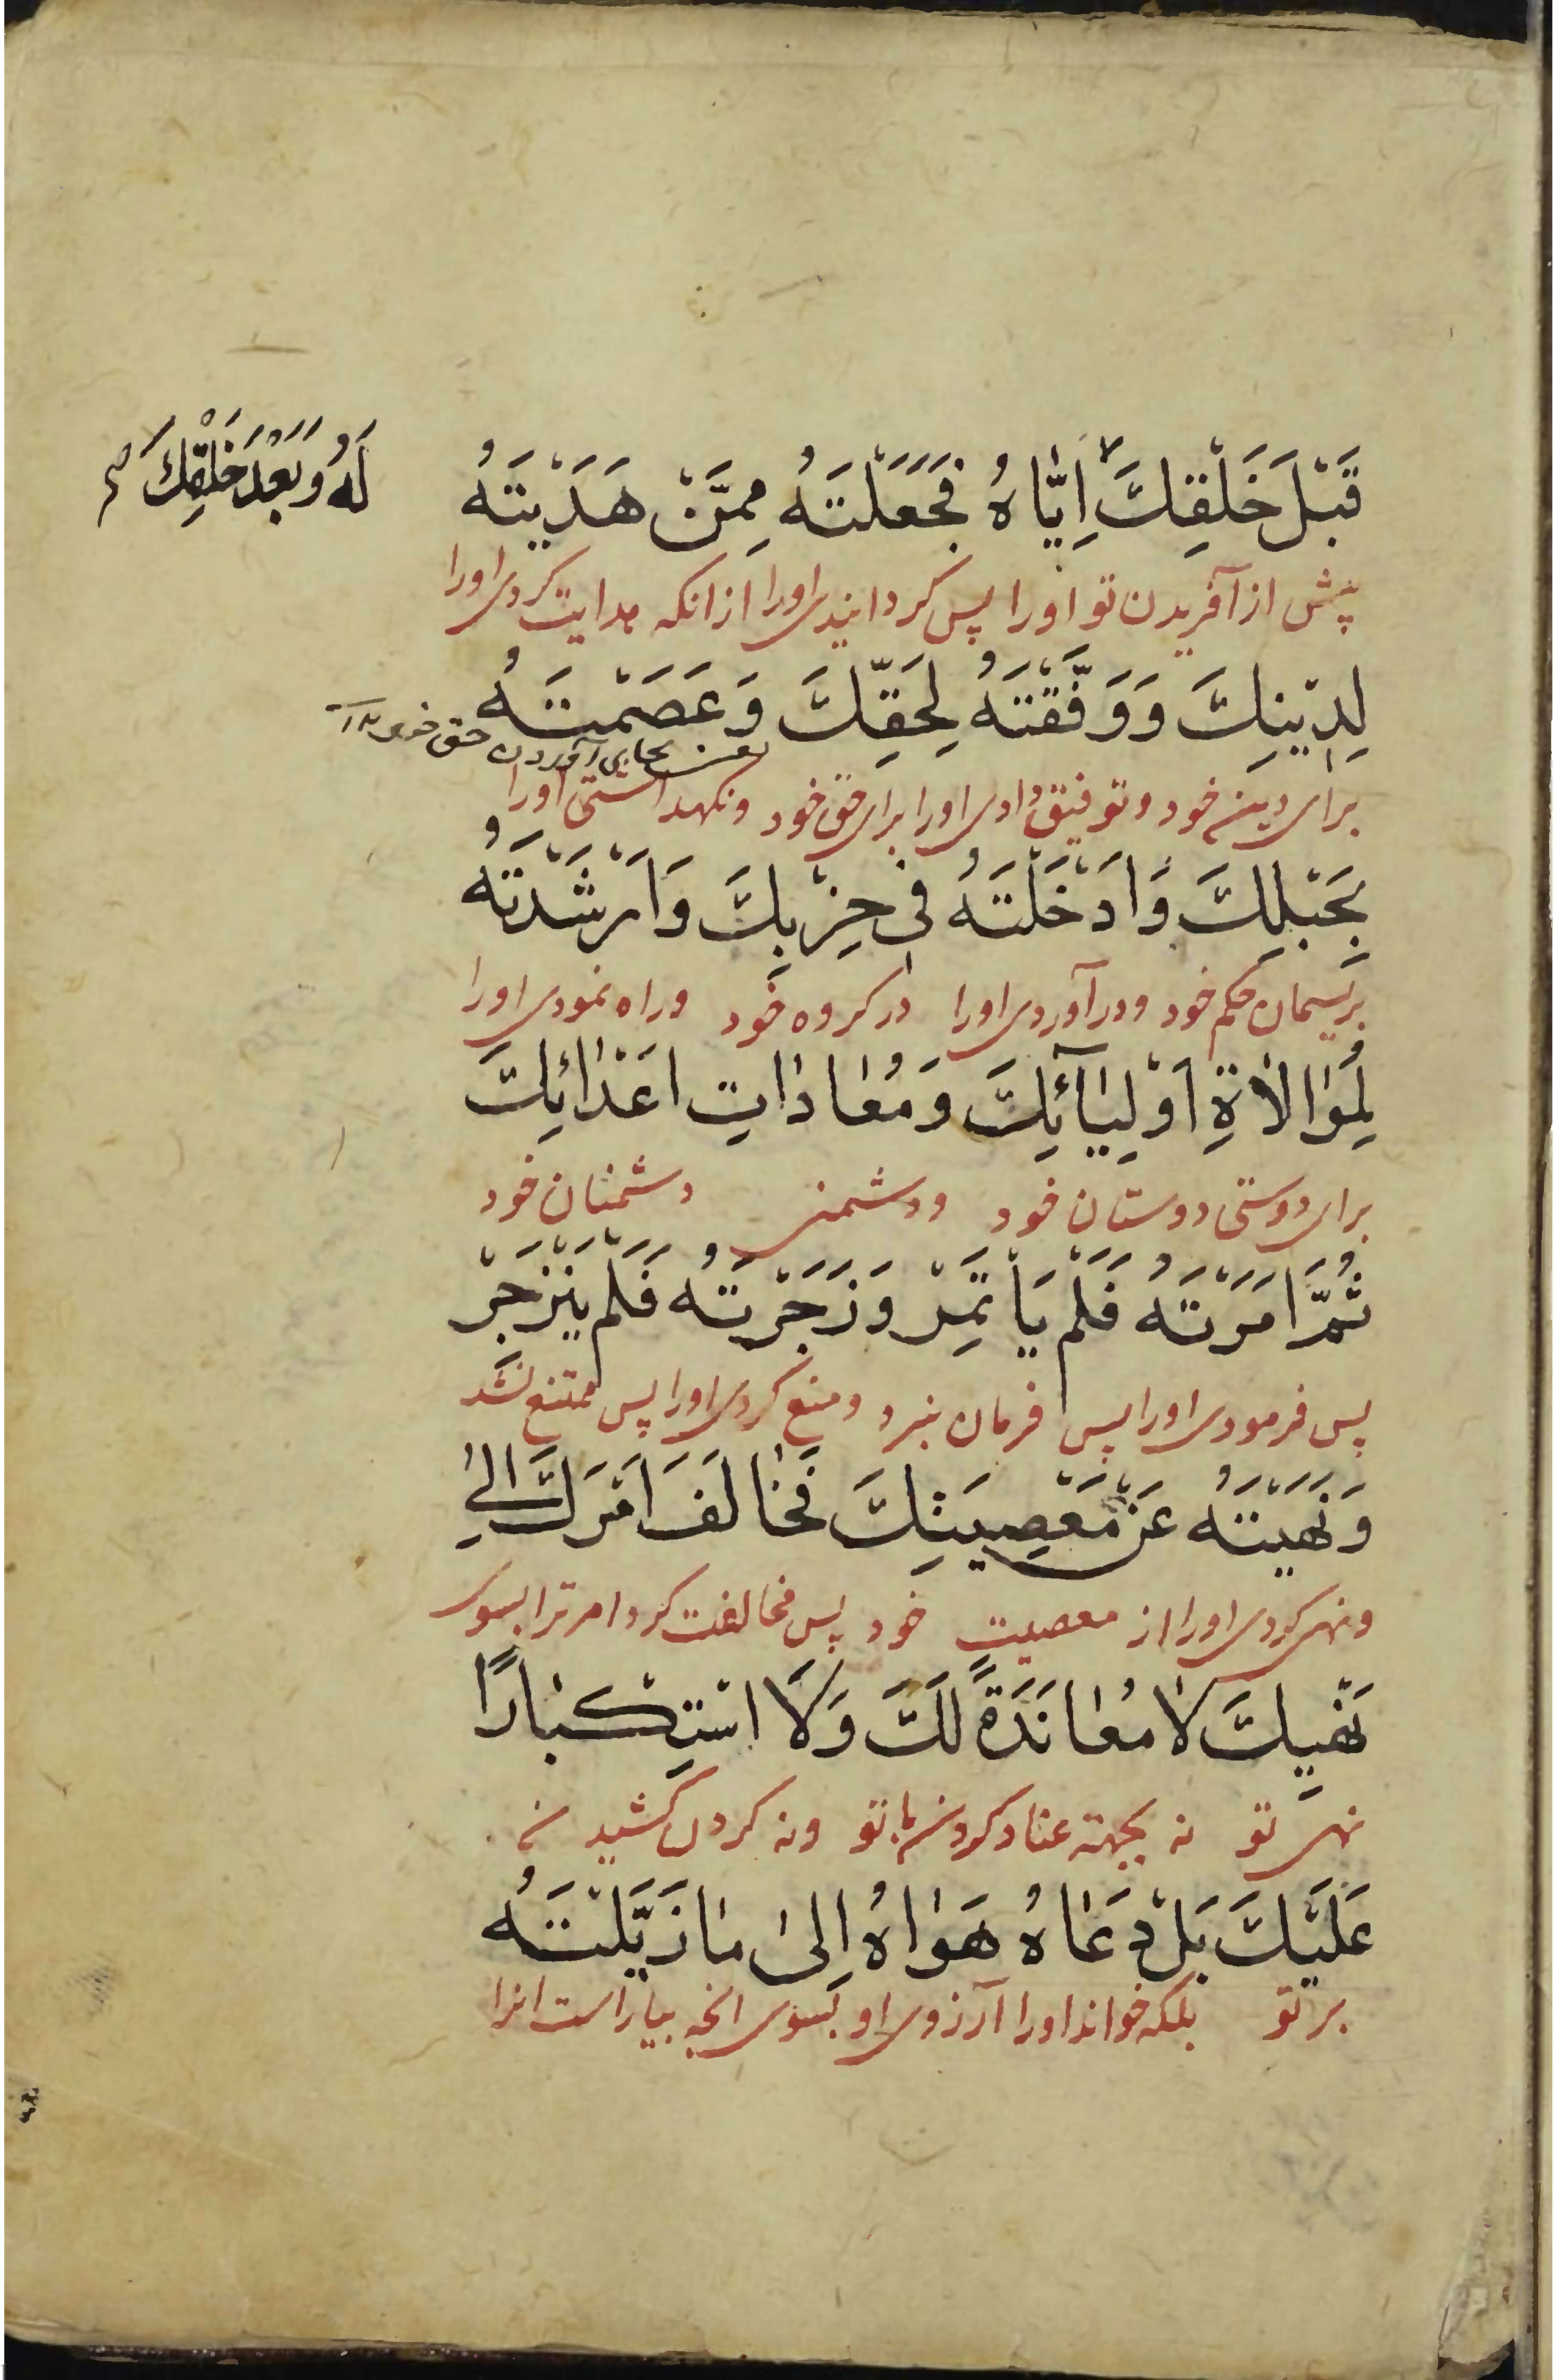 قَبْلَ خَلْقِكَ اِيّٰاهُ فَجَعَلْتَهُ مِمَّنْ هَدَيْتَهُ
لَهُ وَبَعْدَ خَلْقِكَ
پیش از آفریدن تو اورا پس کردانیدی اورا ازانکه هدایت کردی اورا
لِدِيْنِكَ وَوَفَّقْتَهُ لِحَقِّكَ وَعَصَمْتَهُ
بجای آوردن حق
برای دین خود و توفیق دادی اورا برای حق خود ونکهداشتی اورا
بِحَبْلِكَ وَاَدْخَلْتَهُ فى حِزْبِكَ وَاَرْشَدْتَهُ
بریسمان حکم خود ودرآوردی اورا در کروه خود وراه نمودی اورا
لِمُوٰالاٰةِ اَوْلِيٰآئِكَ وَمُعٰادٰاتِ اَعْدٰائِكَ
برای دوستی دوستان خود ودشمنی دشمنان خود
ثُمَّ اَمَرْتَهُ فَلَمْ يَأْتَمِرْ وَزَجَرْتَهُ فَلَمْ يَنْزَجِرْ
پس فرمودی اورا پس فرمان نبرد ومنع کردی اورا پس ممتنع نشد
وَنَهَيْتَهُ عَنْ مَعْصِيَتِكَ فَخٰالَفَ اَمْرَكَ اِلىٰ
ونهی کردی اورا از معصیت خود پس مخالفت کرد امر ترا بسوی
نَهْيِكَ لاٰ مُعٰانَدَةً لَكَ وَلاَ اسْتِكْبٰارًا
نهی تو نه بجهته عناد کردن با تو ونه کردن کشیدن
عَلَيْكَ بَلْ دَعٰاهُ هَوٰاهُ اِلىٰ مٰا زَيَّلْتَهُ
بر تو بلکه خواند اورا آرزوی او بسوی انچه بیاراست انرا